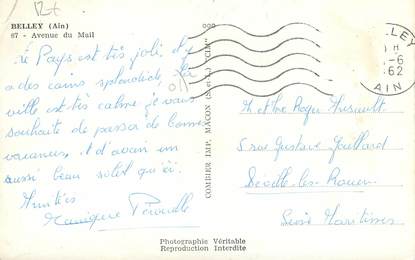 BELLEY (Ain)
87 - Avenue du Mail
Le Pays est très joli, il y
a des coins splendides, La
ville est très calme je vous
souhaite de passer de bonnes
vacances, et d'avoir un
aussi beau soleil qu'ici.
Amitiés
Monique
COMBIER IMP. MACON (S.-et-L.) "CIM"
BELLEY
6
62
AIN
M et Me Roger Thibault
5 rue Gustave
Déville-les-Rouen
Seine Maritime
Photographie Véritable
Reproduction Interdite